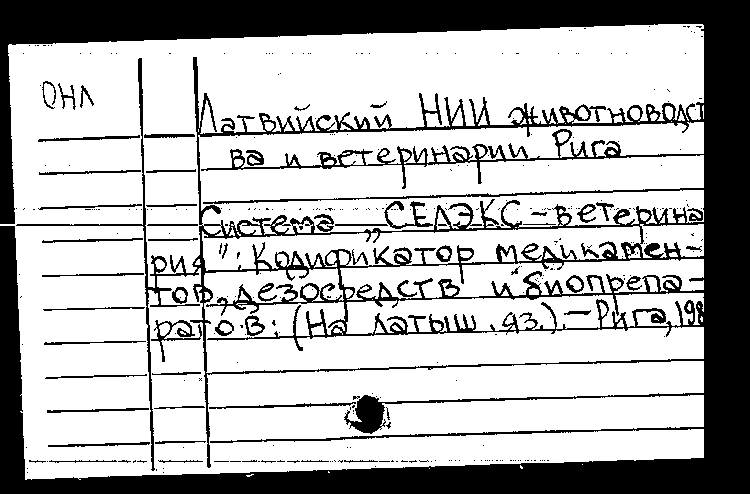 ОНЛ
Латвийский НИИ животноводст
ва и ветеринарии Рига
Система „СЕЛЭКС - ветерина
рия": Кодификатор медикамен-
тов, дезосредств и биопрепа-
ратов: (На латыш. яз.). - Рига, 198